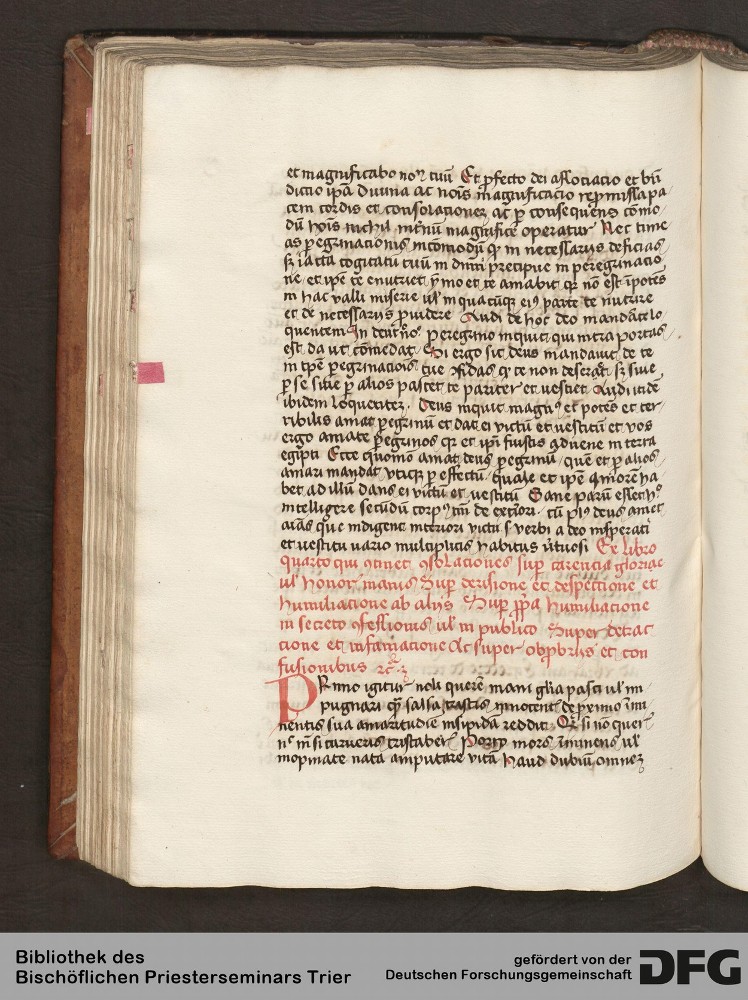 et magnificabo nom̄ tuū Et ꝓfecto dei associacio et bn̄
dictio ipā diuina ac noīs magnificacio repmissa pa
cem cordis et consolacionez ac ꝑ consequens cōmo
dū hoīs nichil magnifice operatur Nec time
as ꝑegrinacionis incomodū qꝫ in necessarijs deficias
sꝫ iacta cogitatū tuū in dn̄m precipue in peregrinacio
ne et ipē te enutriet ymo et te amabit qꝛ non est īpotēs
in hac valli miserie ul' in quacūqꝫ eiꝰ parte te nutrire
et de necessarijs ꝓuidere Audi de hoc deo mandāte lo
quentem In deut̄ro peregrino inquit qui intra portas
est da ut comedat Si ergo sic deus mandauit de te
in tpē ꝑegrinacionis tue ꝯfidas qꝫ te non deserat sꝫ siue
ꝑ se siue ꝑ alios pascet te pariter et uestiet Audi itidē
ibidem loquentez. Deus inquit magnꝰ et potēs et ter
ribilis amat ꝑegrinū et dat ei victū et uestitū et vos
ergo amate ꝑegrinos qꝛ et ipī fuistis aduene in terra
egipti Ecce quomō amat deus ꝑegrinū quē et ꝑ alios
amari mandat utiqꝫ ꝑ effectū quale et ipē amorē ha
bet ad illū dans ei victū et uestitū Sane parū esset hͦ
intelligere secūdū corpꝰ tm̄ de exteriori cū piꝰ deus amet
aīas que indigent interiori victu s verbi a deo insperati
et uestitu uario multiplicis habitus v̄tuosi Ex libro
quarto qui ꝯtinet ꝯsolaciones suꝑ carencia gloriae
ul' honor manis Suꝑ derisione et despectione et
humiliacione ab alijs Suꝑ ꝓpa humiliacione
in secreto ꝯfessionis ul' in publico Super detrac
cione et infamacione Ac super obꝓbrijs et con
fusionibus
Primo igitur noli querere inani glīa pasci ul' in
pugnari salsa innocent̄ de ꝓximo īmi
nentis sua amaritudīe insipida reddit Qꝛ si nō quer
nͥ si carueris tristaber Porro mors īminens ul'
inopinate nata amputare vitā haud dubiū omnez
Bibliothek des
Bischöflichen Priesterseminars Trier
gefördert von der
Deutschen Forschungsgemeinschaft
DFG